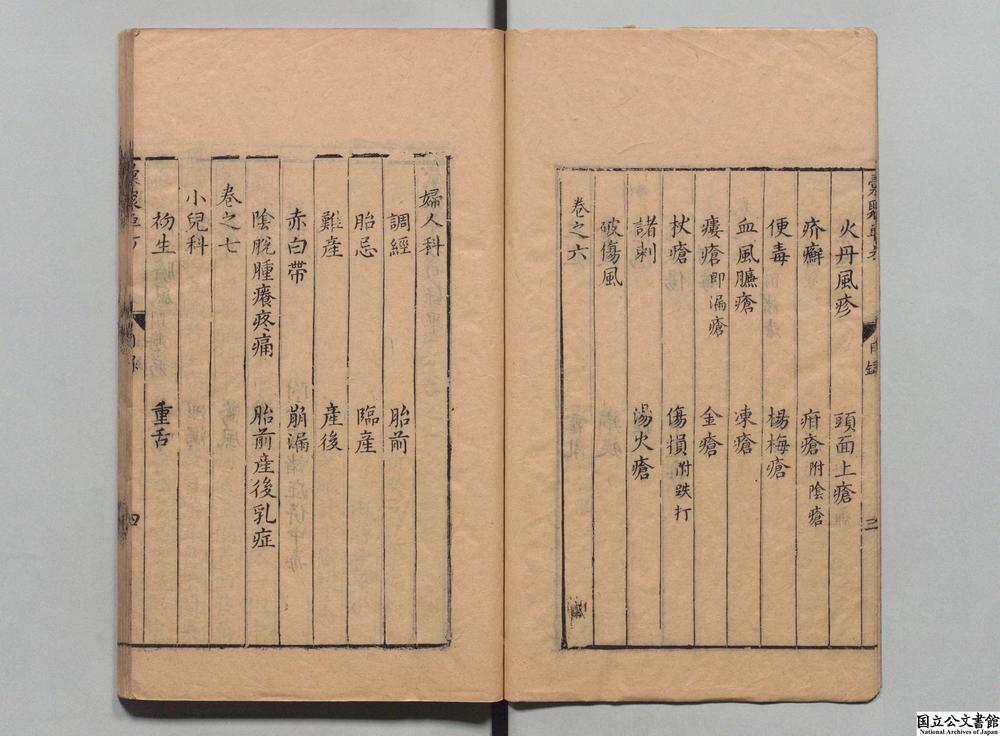 火丹風疹 頭面上瘡
疥癬 疳瘡附陰瘡
便毒 楊梅瘡
血風臁瘡 凍瘡
瘻瘡即漏瘡 金瘡
杖瘡 傷損附跌打
諸刺 湯火瘡
破傷風
卷之六
婦人科
調經 胎前
胎忌 臨產
難產 產後
赤白帶 崩漏
陰脫腫癢疼痛 胎前產後乳症
卷之七
小兒科
初生 重舌
目錄
四
国立公文書館
National Archives of Japan